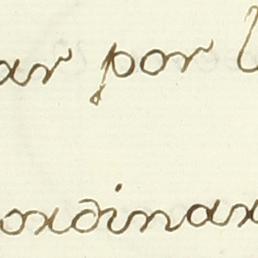 ar por l
ordinar